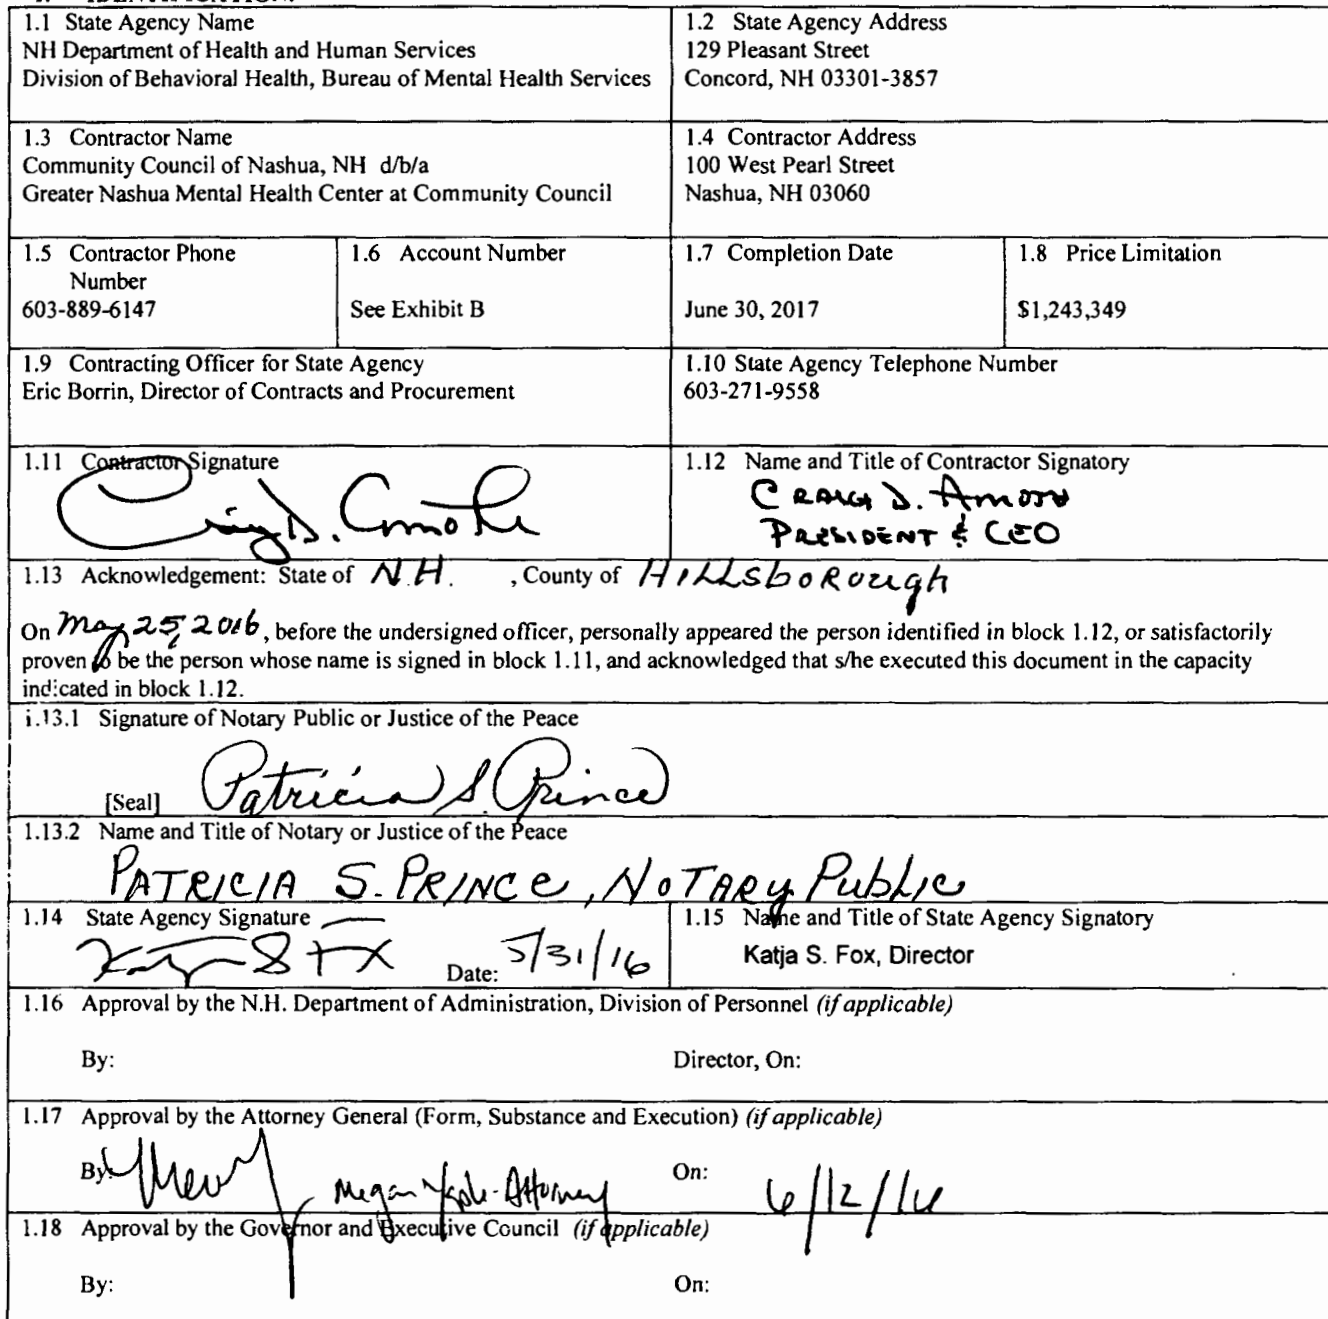 1.1 State Agency Name
NH Department of Health and Human Services
Division of Behavioral Health, Bureau of Mental Health Services
1.2 State Agency Address
129 Pleasant Street
Concord, NH 03301-3857
1.3 Contractor Name
Community Council of Nashua, NH d/b/a
Greater Nashua Mental Health Center at Community Council
1.4 Contractor Address
100 West Pearl Street
Nashua, NH 03060
1.5 Contractor Phone
Number
603-889-6147
1.6 Account Number
See Exhibit B
1.7 Completion Date
June 30, 2017
1.8 Price Limitation
$1,243,349
1.9 Contracting Officer for State Agency
Eric Borrin, Director of Contracts and Procurement
1.10 State Agency Telephone Number
603-271-9558
1.11 Contractor Signature
Craig D.
1.12 Name and Title of Contractor Signatory
CRAIG D.
PRESIDENT & CEO
1.13 Acknowledgement: State of N.H. , County of HILLSboRough
On May 25, 2016, before the undersigned officer, personally appeared the person identified in block 1.12, or satisfactorily
proven to be the person whose name is signed in block 1.11, and acknowledged that s/he executed this document in the capacity
indicated in block 1.12.
1.13.1 Signature of Notary Public or Justice of the Peace
[Seal] Patricia S. Prince
1.13.2 Name and Title of Notary or Justice of the Peace
PATRICIA S. PRINCE, NOTARY Public
1.14 State Agency Signature
Date: 5/31/16
1.15 Name and Title of State Agency Signatory
Katja S. Fox, Director
1.16 Approval by the N.H. Department of Administration, Division of Personnel (if applicable)
By: Director, On:
1.17 Approval by the Attorney General (Form, Substance and Execution) (if applicable)
By: Megan - Attorney On: 6/12/16
1.18 Approval by the Governor and Executive Council (if applicable)
By: On: